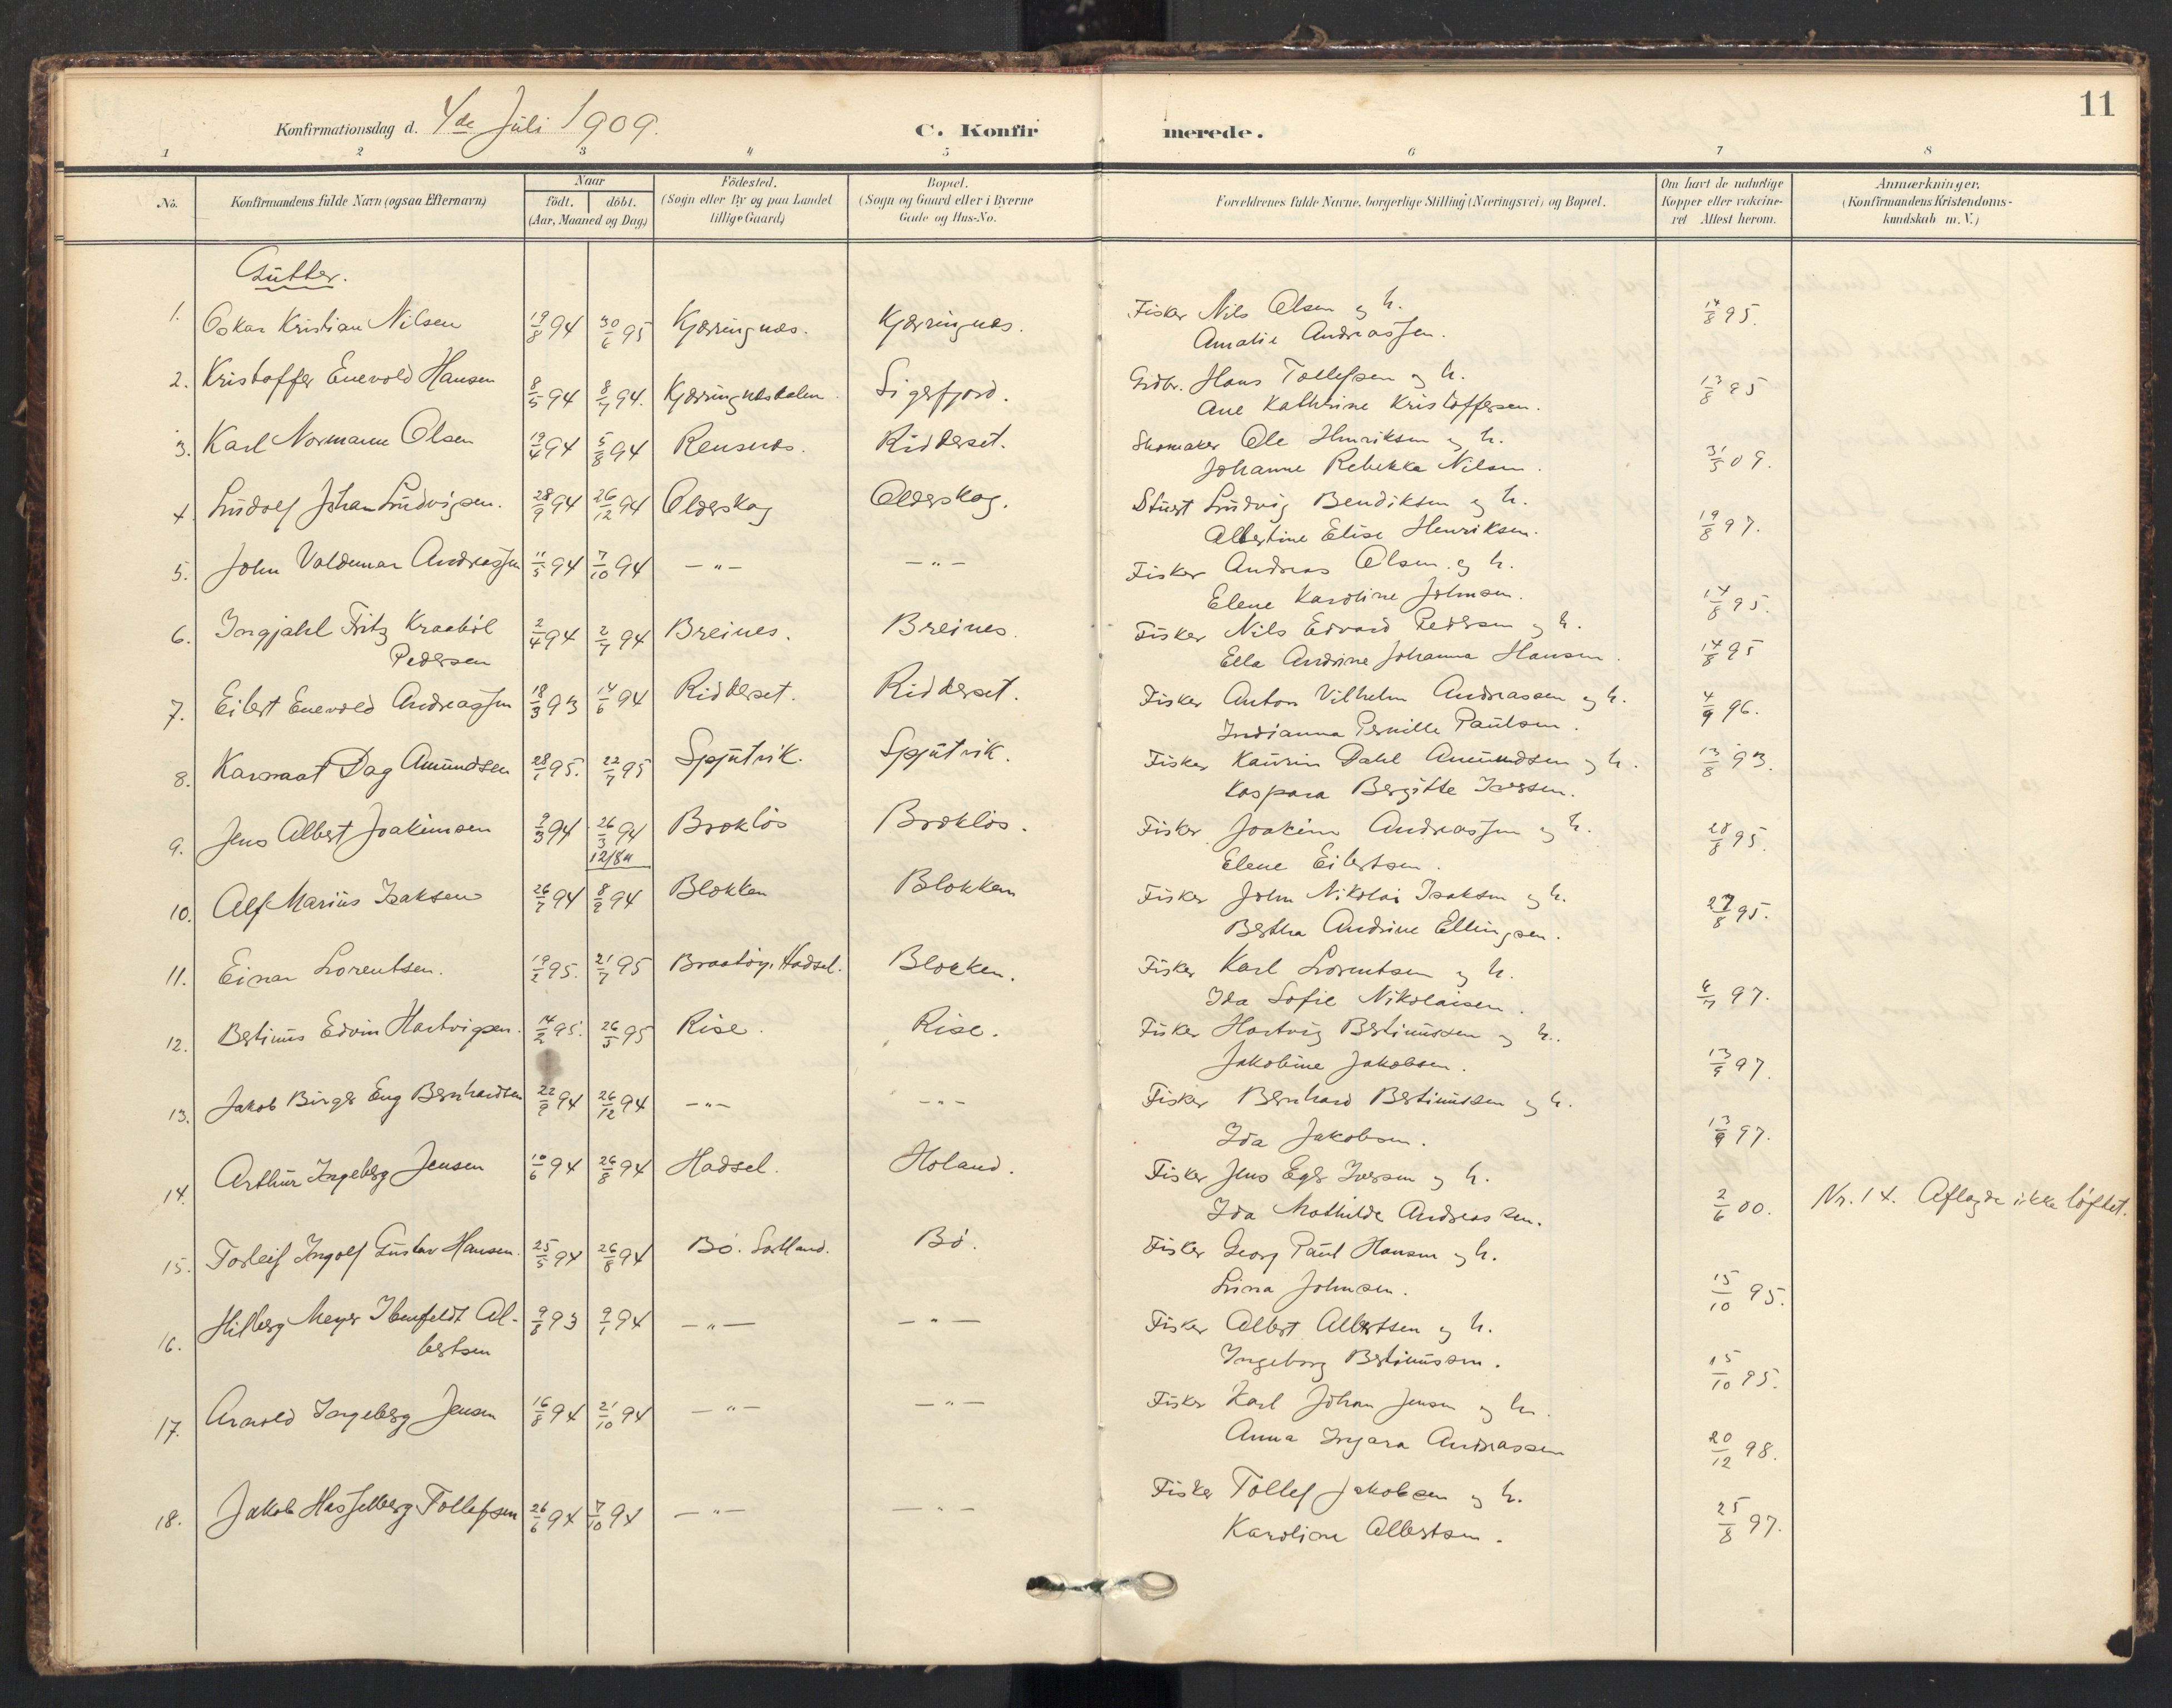 11
Konfirmationsdag d. 4de Juli 1909. C. Konfirmerede.
1 2 3 4 5 6 7 8
No. Konfirmandens fulde Navn (ogsaa Efternavn) Naar födt. döbt. (Aar, Maaned og Dag) Födested. (Sogn eller By og paa Landet tillige Gaard) Bopæl. (Sogn og Gaard eller i Byerne Gade og Hus-No. Forældrenes fulde Navne, borgerlige Stilling (Næringsvei) og Bopæl. Om havt de naturlige Kopper eller vakcineret Attest herom. Anmærkninger. (Konfirmandens Kristendomskundskab m. V.)
Gutter.
1. Oskar Kristian Nilsen 19/8 94 30/6 95 Kjærringnes. Kjærringnes. Fisker Nils Olsen og h. 14/8 95.
Amalie Andreassen.
2. Kristoffer Enevold Hansen 8/5 94 8/7 94. Kjærringnesdalen Sigerfjord. Grdbr. Hans Tollefsen og h. 13/8 95
Ane Kathrine Kristoffersen.
3. Karl Normann Olsen 19/4 94 5/8 94 Rensnes. Ridderset. Skomaker Ole Henriksen og h. 31/5 09.
Johanne Rebekka Nilsen.
4. Ludolf Johan Ludvigsen. 28/9 94 26/12 94 Olderskog Olderskog. Stuert Ludvig Bendiksen og h. 19/8 97.
Albertine Elise Henriksen.
5. John Valdemar Andreassen 11/5 94 7/10 94 — " — — " — Fisker Andreas Olsen og h. 14/8 95.
Elene Karoline Johnsen.
6. Ingjald Fritz Kraaböl 2/4 94 2/7 94 Breines. Breines. Fisker Nils Edvard Pedersen og h. 14/8 95
Pedersen Ella Andrine Johanna Hansen.
7. Eilert Enevold Andreassen 18/3 93 14/6 94 Ridderset. Ridderset. Fisker Anton Vilhelm Andreassen og h. 4/9 96.
Indianna Pernille Paulsen.
8. Dag Amundsen 28/1 95. 22/7 95 Spjutvik. Spjutvik. Fisker Kaurin Dahl Amundsen og h. 13/8 93.
Kaspara Bergitte Iversen.
9. Jens Albert Joakimsen 9/3 94 26/3 94 Broklös Broklös. Fisker Joakim Andreassen og h. 28/8 95.
12/8 94 Elene Eilertsen.
10. Alf Marius Isaksen 26/7 94 8/2 94 Blokken Blokken Fisker John Nikolai Isaksen og h. 27/8 95.
Bertha Andrine Ellingsen.
11. Einar Lorentsen. 19/2 95. 21/7 95 Braatöy, Hadsel. Blokken. Fisker Karl Lorentsen og h. 6/7 97.
Ida Sofie Nikolaisen.
12. Bertinus Edvin Hartvigsen. 14/2 95. 26/5 95 Rise. Rise. Fisker Hartvig Bertinussen og h. 13/9 97.
Jakobine Jakobsen.
13. Jakob Birger Eng Bernhardsen 22/9 94 26/12 94 — " — — " — Fisker Bernhard Bertinussen og h. 13/9 97.
Ida Jakobsen.
14. Arthur Ingeberg Jensen 10/6 94 26/8 94 Hadsel. Holand. Fisker Jens Eger Iversen og h. 2/6 00. Nr. 14. Aflagde ikke löftet.
Ida Mathilde Andreassen.
15. Torleif Ingolf Gustav Hansen. 25/5 94 26/8 94 Bö. Sortland. Bö. Fisker Georg Paul Hansen og h. 15/10 95.
Lina Johnsen.
16. Hilberg Meyer Ibenfeldt Al- 9/8 93 9/1 94 — " — — " — Fisker Albert Albertsen og h. 15/10 95.
bertsen Ingeborg Bertinussen.
17. Arnold Ingeberg Jensen 16/8 94 21/10 94 — " — — " — Fisker Karl Johan Jensen og h. 20/12 98.
Anna Ingara Andreassen
18. Jakob Hasselberg Tollefsen 26/6 94 7/10 94 — " — — " — Fisker Tollef Jakobsen og h. 25/8 97.
Karoline Albertsen.